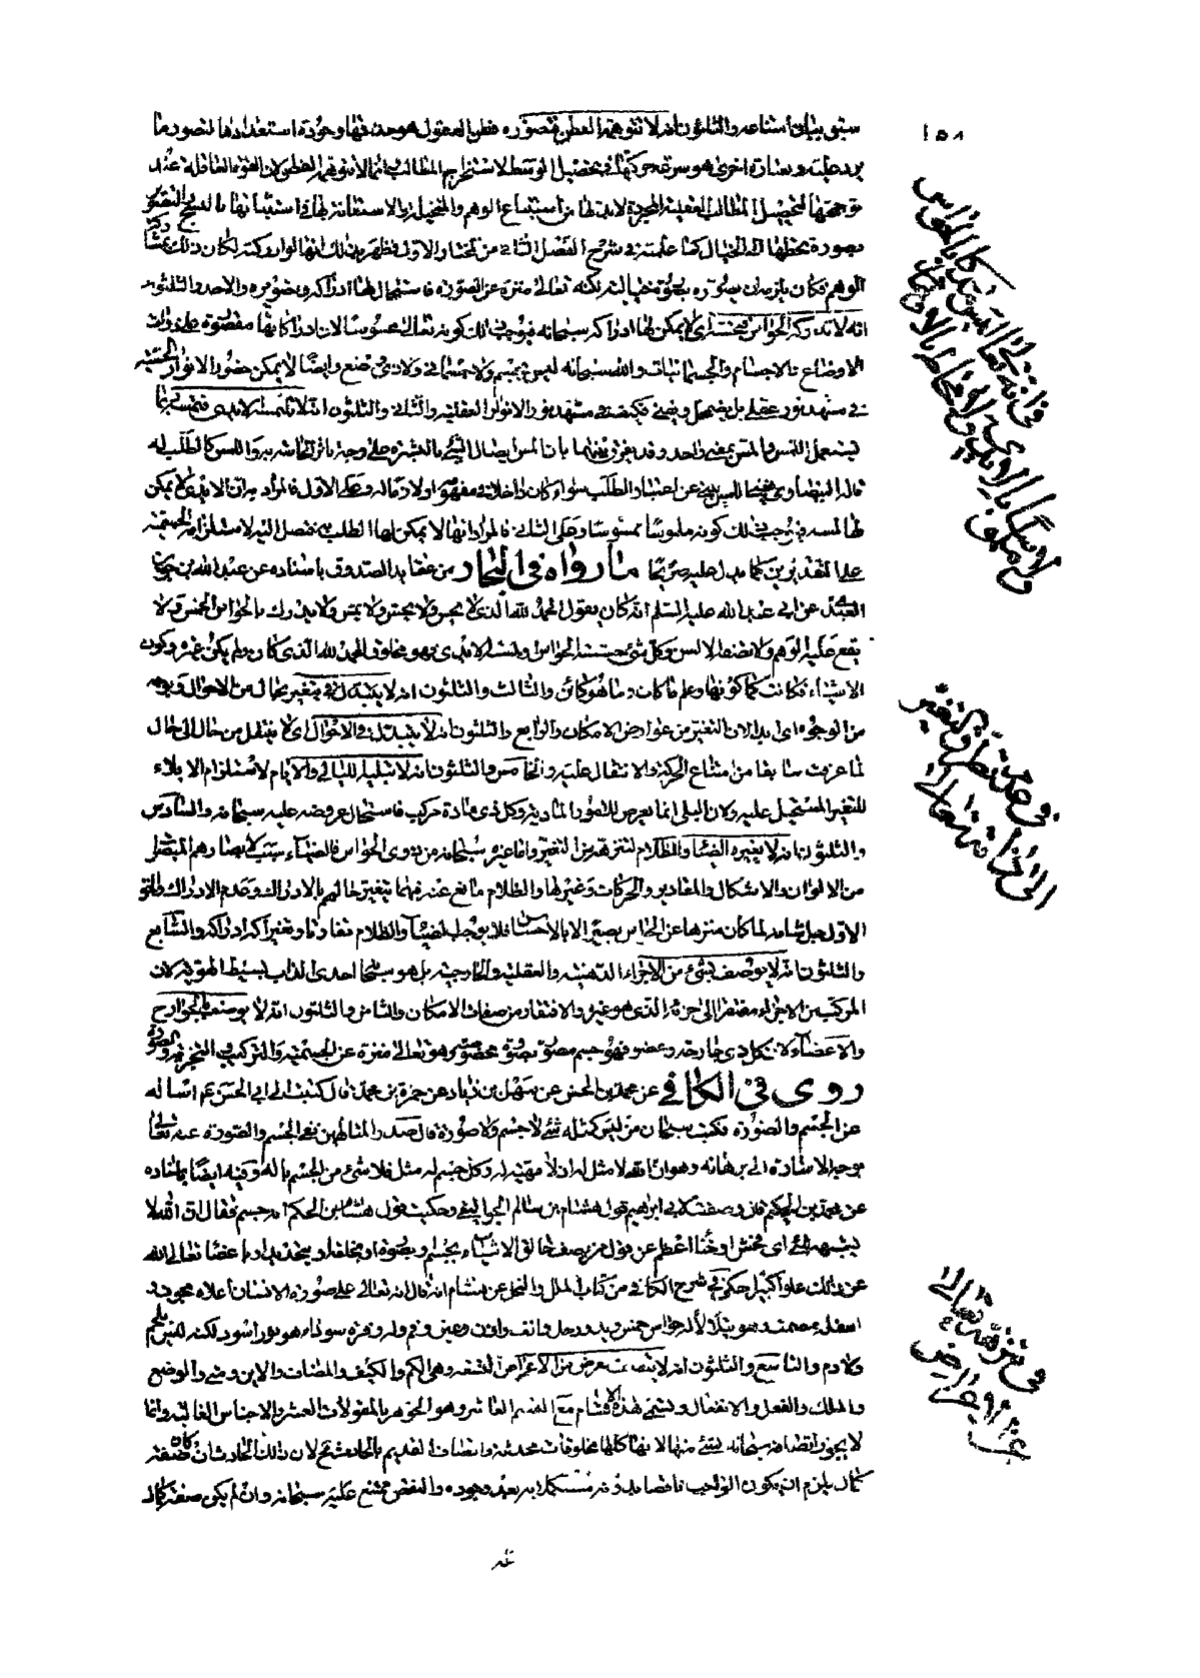 سبق بيان امتناعه والثلثون انه لا تتوهمه الفطن فتصوره فطن العقول هو حدتها وجودة استعدادها لتصور ما
يرد عليه وبعبارة اخرى هو سرعة حركتها في تحصيل الوسط لاستخراج المطالب وانما لا تتوهمه الفطن لان القوة العاقلة عند
توجهها لتحصيل المطالب العقلية المجردة لابد لها من استتباع الوهم والمتخيلة والاستعانة بهما في استثباتها بالشبح والتصوير
بصورة يحطها الى الخيال كما علمته في شرح الفصل الثاني من المختار الاول فظهر بذلك انها لو ادركته لكان ذلك بمشاركة
الوهم فكان يلزم ان يصوره بصورة خيالية لكنه تعالى منزه عن الصورة فاستحال لها ادراكه وتصويره والاحد والثلثون
انه لا تدركه الحواس فتحسه اي لا يمكن لها ادراكه سبحانه فيوجب ذلك كونه تعالى محسوسا لان ادراكاتها مقصورة على ذوات
الاوضاع بالاجسام والجسمانيات والله سبحانه ليس بجسم ولا جسماني ولا ذي وضع وايضا لا يمكن حضور الانوار الحسية
في مشهد نور عقلي بل يضمحل ويفنى فكيف في مشهد نور الانوار العقلية والثاني والثلثون انه لا تلمسه الايدي فتمسه ربما
يستعمل اللمس والمس بمعنى واحد وقد يفرق بينهما بان المس ايصال الشيء بالبشرة على وجه تتأثر الحاسة به واللمس كالطلب له
قاله البيضاوي
لها لمسه فيوجب ذلك كونه ملموسا ممسوسا وعلى الثاني فالمراد انها لا يمكن لها الطلب
على التقديرين كما يدل عليه صريحا ما رواه في البحار من عقايد الصدوق باسناده عن عبد الله بن جوين
العبدي عن ابي عبد الله عليه السلم انه كان يقول الحمد لله الذي لا يحس ولا يجس ولا يمس ولا يدرك بالحواس الخمس ولا
يقع عليه الوهم ولا تصفه الالسن وكل شيء حسته الحواس ولمسته الايدي فهو مخلوق الحمد لله الذي كان ولم يكن غيره وكون
الاشياء فكانت كما كونها وعلم ما كان وما هو كائن والثالث والثلثون انه لا يتبدل اي يتغير بحال من الاحوال وبوجه
من الوجوه اي ابدا لان التغير من عوارض الامكان والرابع والثلثون انه لا يتبدل في الاحوال اي لا ينتقل من حال الى حال
لما عرفت سابقا من امتناع الحركة والانتقال عليه والخامس والثلثون انه لا تبليه الليالي والايام لاستلزام الابلاء
للتغير المستحيل عليه ولان البلى انما يعرض للصور المادية وكل ذي مادة مركب فاستحال عروضه عليه سبحانه والسادس
والثلثون انه لا يغيره الضياء والظلام لتنزهه من التغير واما غيره سبحانه من ذوي الحواس فالضياء سبب لابصارهم المبصرات
من الالوان والاشكال والمقادير والحركات وغيرها والظلام مانع عنه فبهما يتغير حالهم بالادراك وعدم الادراك
الاول جل شانه لما كان منزها عن الحواس بصيرا لا بالاحساس فلا يوجب الضياء والظلام تفاوتا وتغيرا لادراكه والسابع
والثلثون انه لا يوصف بشيء من الاجزاء الذهنية والعقلية والخارجية بل هو سبحانه احدي الذات بسيط الهوية لان
المركب من الاجزاء مفتقر الى جزئه الذي هو غيره والافتقار من صفات الامكان والثامن والثلثون انه لا يوصف بالجوارح
والاعضاء لان كل ذي جارحة وعضو فهو جسم مصور بصورة مخصوصة وهو تعالى منزه عن الجسمية والتركيب والتجزية والصورة
روى في الكافي عن محمد بن الحسن عن سهل بن زياد عن حمزة بن محمد قال كتبت الى ابي الحسن ع م اسأله
عن الجسم والصورة فكتب سبحان من ليس كمثله شيء لا جسم ولا صورة قال صدر المتالهين نفي الجسم والصورة عنه تعالى
بوجه الاشارة الى برهانه وهو ان الله لا مثل له لان لا مهية له وكل جسم له مثل فلا شيء من الجسم باله وفيه ايضا باسناده
عن محمد بن الحكيم قال وصفت لابي ابراهيم قول هشام بن سالم الجواليقي وحكيت قول هشام بن الحكم انه جسم فقال ان الله لا
يشبهه شيء اي فحش او خنا اعظم من قول من يصف خالق الاشياء بجسم وبصورة او بخلقة او بتحديد او باعضاء تعالى الله
عن ذلك علوا كبيرا حكى في شرح الكافي من كتاب الملل والنحل عن هشام انه قال انه تعالى على صورة الانسان اعلاه مجوف
اسفله مصمت وهو يتلألأ له حواس خمس ويد ورجل وانف واذن وعين وفم وله وفرة سوداء هو نور اسود لكنه ليس بلحم
ولا دم والتاسع والثلثون انه لا يتصف بعرض من الاعراض التسعة وهي الكم والكيف والمضاف والاين ومتى والوضع
والملك والفعل والانفعال وتسمى هذه الاقسام مع القسم العاشر وهو الجوهر بالمقولات العشر والاجناس العالية وانما
لا يجوز اتصافه سبحانه بشيء منها لانها كلها مخلوقات محدثة واتصاف القديم بالحادث محال لان ذلك الحادث ان كان صفة
كمال يلزم ان يكون الواجب ناقصا بدونه مستكملا به بعد وجوده والنقص ممتنع عليه سبحانه وان لم يكن صفة كمال